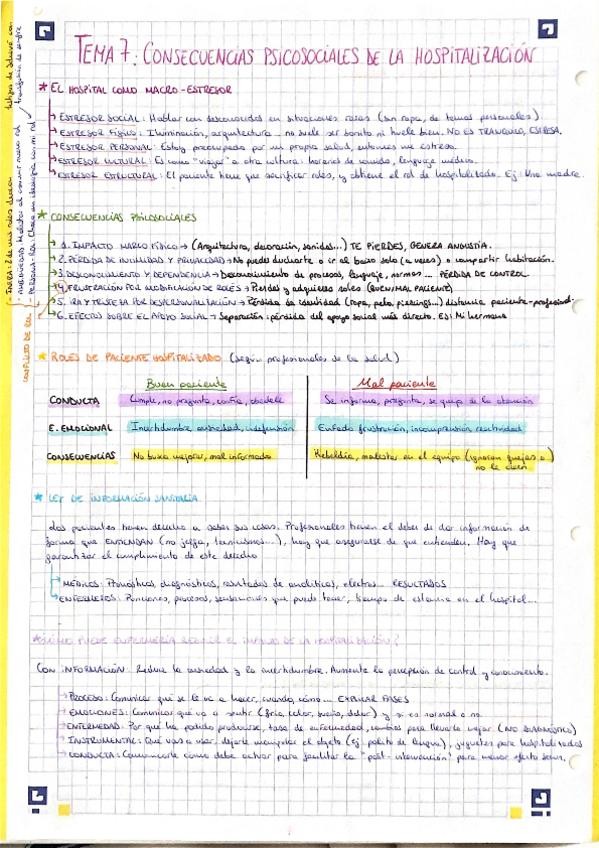 TEMA 7: CONSECUENCIAS PSICOSOCIALES DE LA HOSPITALIZACIÓN
* EL HOSPITAL COMO MACRO-ESTRESOR
ESTRESOR SOCIAL: Hablar con desconocidos en situaciones raras (sin ropa, de temas personales).
ESTRESOR FÍSICO: Iluminación, arquitectura... no suele ser bonito ni huele bien. NO ES TRANQUILO, ESTRESA.
ESTRESOR PERSONAL: Estoy preocupada por mi propia salud, entonces me estresa.
ESTRESOR CULTURAL: Es como "viajar" a otra cultura: horarios de comida, lenguaje médico.
ESTRESOR ESTRUCTURAL: El paciente tiene que sacrificar roles, y obtiene el rol de hospitalizado. Ej: Una madre.
* CONSECUENCIAS PSICOSOCIALES
1. IMPACTO MARCO FÍSICO → (Arquitectura, decoración, sonidos...) TE PIERDES, GENERA ANGUSTIA.
2. PÉRDIDA DE INTIMIDAD Y PRIVACIDAD → No puedes ducharte o ir al baño solo (a veces) o compartir habitación.
3. DESCONOCIMIENTO Y DEPENDENCIA → Desconocimiento de procesos, lenguaje, normas... PÉRDIDA DE CONTROL
4. FRUSTRACIÓN POR MODIFICACIÓN DE ROLES → Pierdes y adquieres roles (BUEN/MAL PACIENTE)
5. IRA Y TRISTEZA POR DESPERSONALIZACIÓN → Pérdida de identidad (ropa, pelo, piercings...) distancia paciente-profesional
6. EFECTOS SOBRE EL APOYO SOCIAL → Separación: pérdida del apoyo social más directo. EJ: Mi hermana
CONFLICTO DE ROL
- INTRA: 2 de mis roles chocan
- PERSONA-ROL: Choca mi ideología con mi rol
* ROLES DE PACIENTE HOSPITALIZADO (según profesionales de la salud)
Buen paciente Mal paciente
CONDUCTA Cumple, no pregunta, confía, obedece Se informa, pregunta, se queja de la atención
E. EMOCIONAL Incertidumbre, ansiedad, indefensión Enfado, frustración, incomprensión, reactividad
CONSECUENCIAS No busca mejorar, mal informado Rebeldía, malestar en el equipo (ignoran quejas o no le creen)
* LEY DE INFORMACIÓN SANITARIA
Los pacientes tienen derecho a saber sus cosas. Profesionales tienen el deber de dar información de
forma que ENTIENDAN (no jerga, tecnicismos...), hay que asegurarse de que entienden. Hay que
garantizar el cumplimiento de este derecho
MÉDICOS: Pronósticos, diagnósticos, resultados de analíticas, electros... RESULTADOS
ENFERMEROS: Punciones, procesos, sensaciones que puede tener, tiempo de estancia en el hospital...
* ¿CÓMO PUEDE ENFERMERÍA REDUCIR EL IMPACTO DE LA HOSPITALIZACIÓN?
CON INFORMACIÓN: Reduce la ansiedad y la incertidumbre. Aumenta la percepción de control y conocimiento.
PROCESO: Comunicar qué se le va a hacer, cuándo, cómo... EXPLICAR FASES
EMOCIONES: Comunicar qué va a sentir (frío, calor, sueño, dolor) y si es normal o no
ENFERMEDAD: Por qué ha podido producirse, tasa de enfermedad, cambios para llevarla mejor (NO DIAGNÓSTICO)
INSTRUMENTAL: Qué vas a usar, dejarle manipular el objeto (ej. palito de lengua), juguetes para hospitalizados
CONDUCTA: Comunicarle cómo debe actuar para facilitar la "post-intervención" para menor efecto secun.